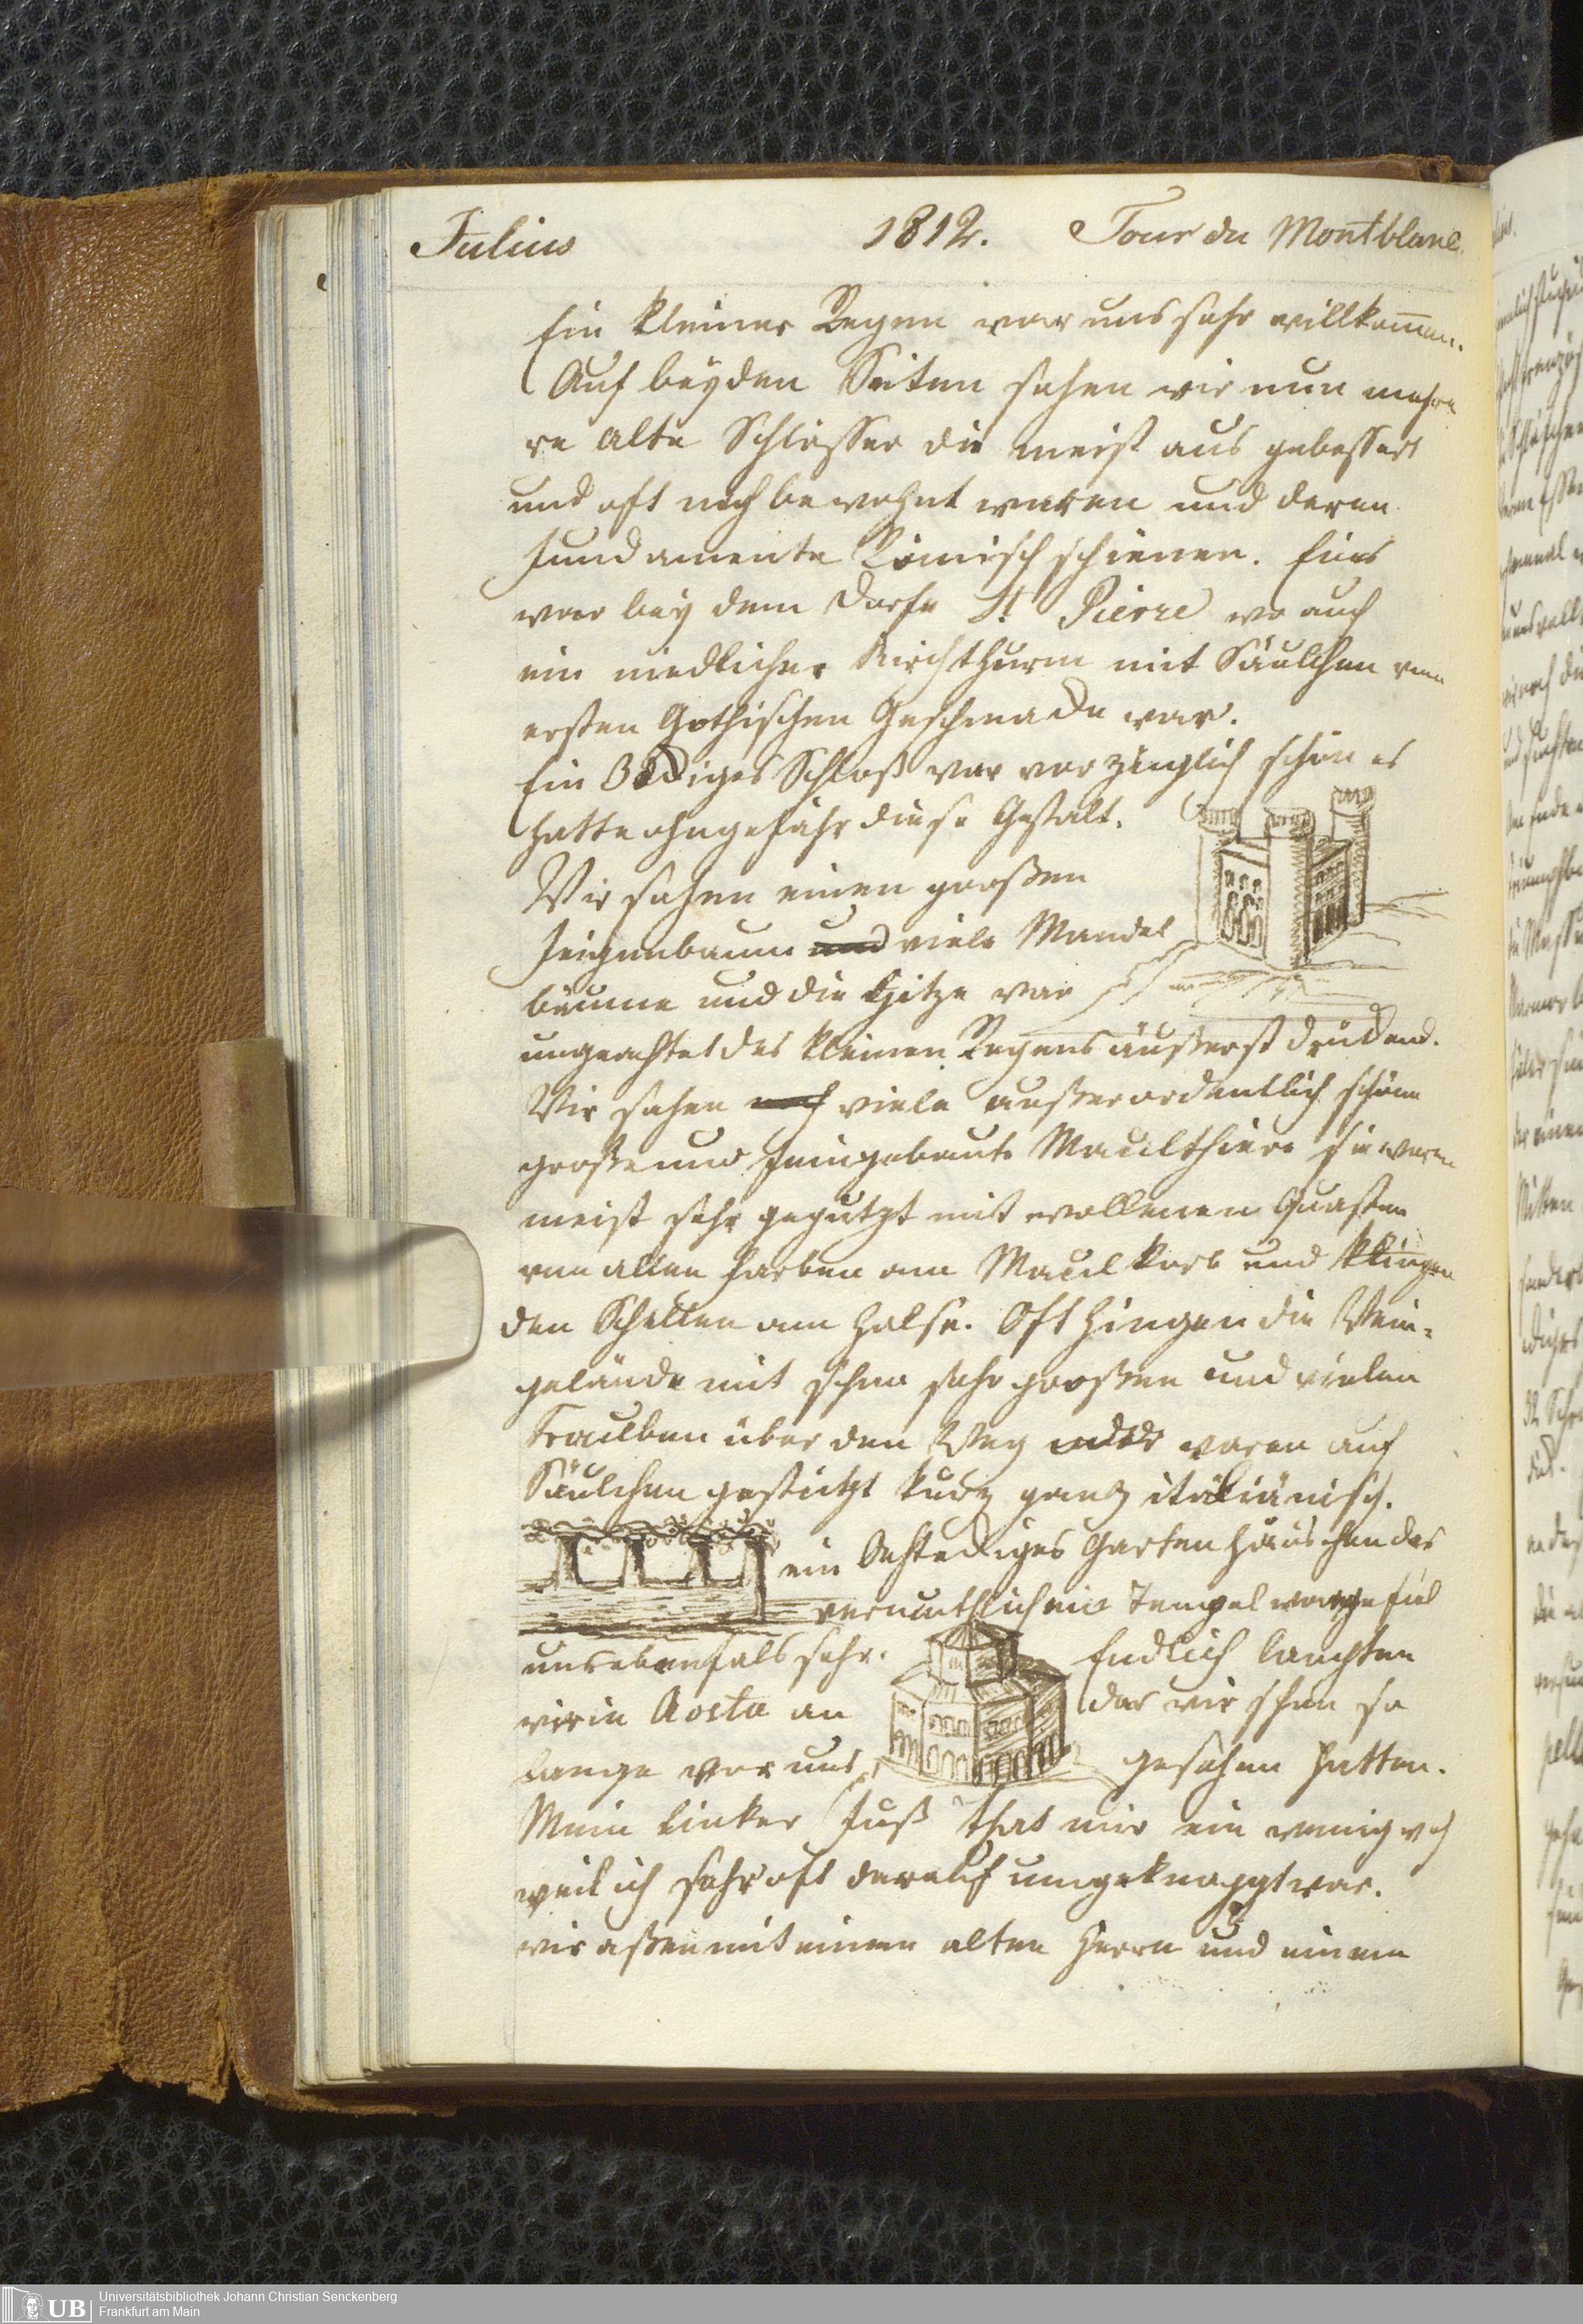 Julius 1812. Tour du Montblanc.
Ein kleiner Regen war uns sehr willkom̅en.
Auf beyden Seiten sahen wir nun mehre
re alte Schlösser die meist aus gebessert
und oft noch bewohnt waren und deren
Fundamente Römisch schienen. Eins
war bey dem Dorfe St Pierre wo auch
ein niedlicher Kirchthurm mit Säulchen von
ersten Gothischen Geschmacke war.
Ein 3eckiges Schloß war vorzüglich schön es
hatte ohngefähr diese Gestalt.
Wir sahen einen großen
Feigenbaum und viele Mandel
bäume und die Hitze war
ungeachtet des kleinen Regens äußerst drückend.
Wir sahen noch viele außerordentlich schöne
große und feingebaute Maulthiere sie waren
meist sehr geputzt mit wollenen Quasten
von allen Farben am Maulkorb und klingen
den Schellen am Halse. Oft hingen die Wein-
gelände mit schon sehr großen und vielen
Trauben über den Weg oder waren auf
Säulchen gestützt kurz ganz italiänisch.
ein Achteckiges Gartenhäuschen das
vermuthlich ein Tempel war gefiel
uns ebenfals sehr. Endlich langten
wir in Aosta an das wir schon so
lange vor uns gesehen hatten.
Mein linker Fuß that mir ein wenig weh
weil ich sehr oft darauf umgeknappt war.
wir aßen mit einem alten Herrn und einem
UB Universitätsbibliothek Johann Christian Senckenberg
Frankfurt am Main